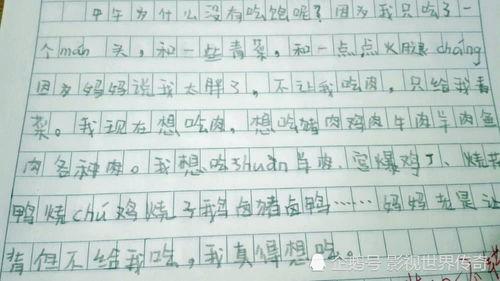 中午为什么没有吃饱呢？因为我只吃了一
个mán 头，和一些青菜，和一点点火腿cháng
因为妈妈说我太胖了，不让我吃肉，只给我青
菜。我现在想吃肉，想吃猪肉鸡肉牛肉羊肉鱼
肉各种肉。我想吃shuàn羊肉，宫爆鸡丁、烧花
鸭烧chú鸡烧子鹅卤猪卤鸭……妈妈就是让
背但不给我吃，我真得想吃。
企鹅号 影视世界传奇